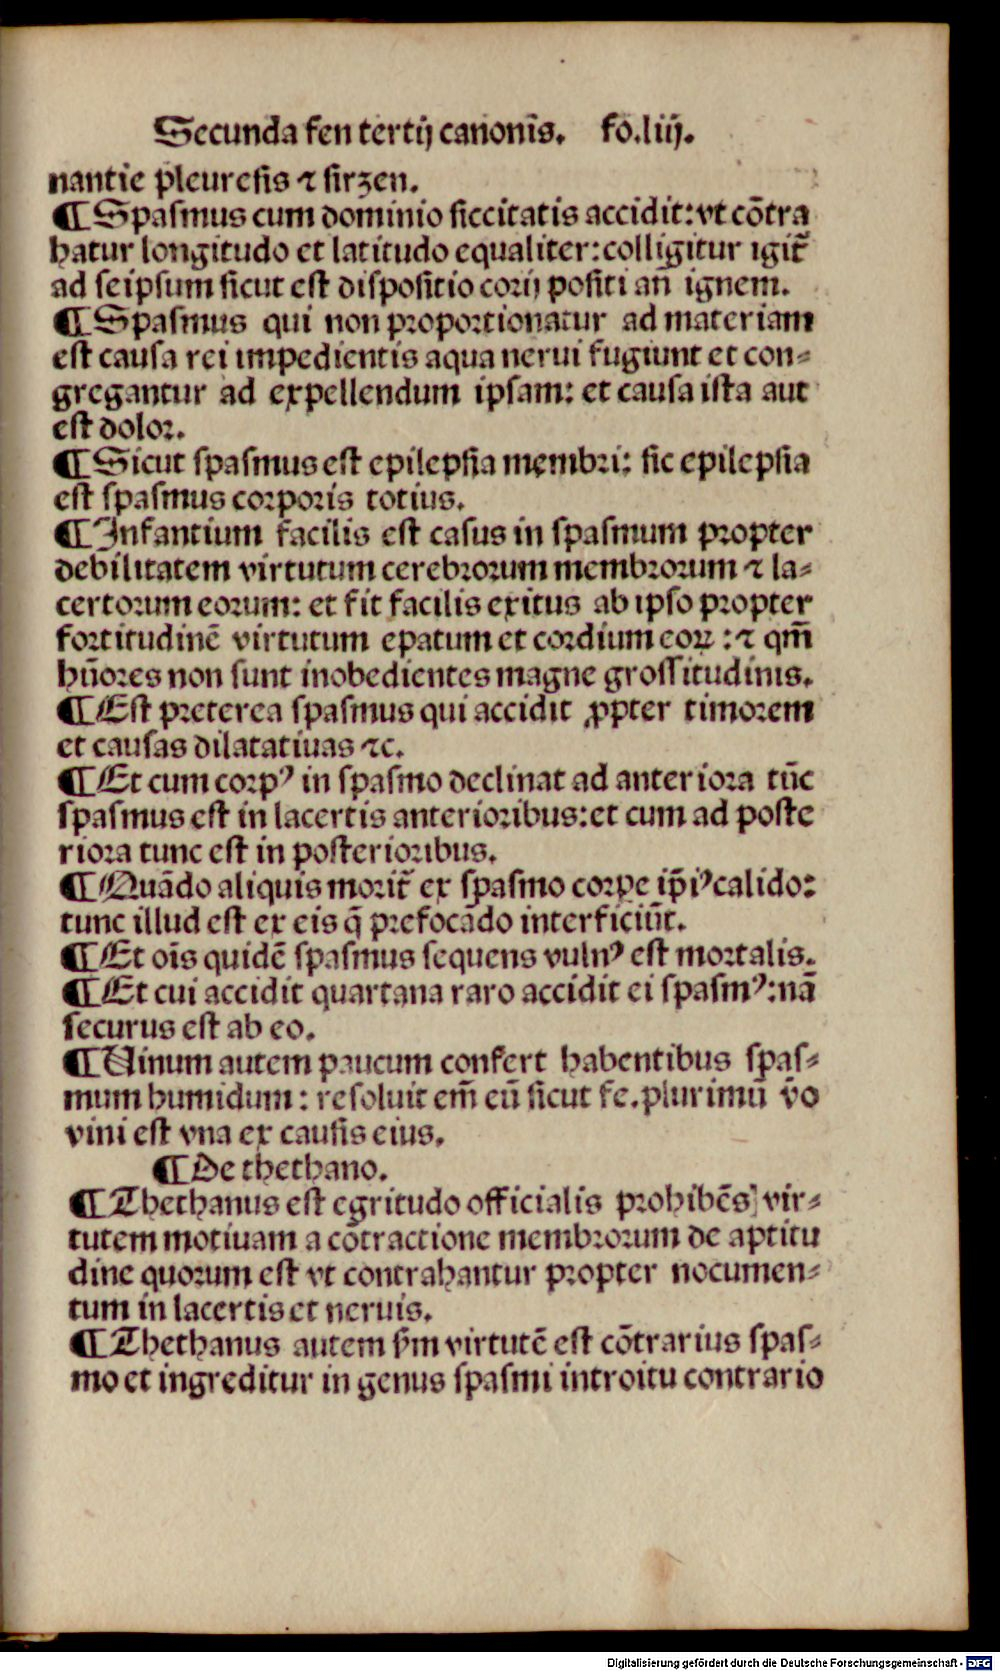 Secunda fen tertij canonis. fo.liij.
nantie pleuresis ⁊ sirzen.
¶ Spasmus cum dominio siccitatis accidit: vt cõtra
hatur longitudo et latitudo equaliter: colligitur igit̃
ad seipsum sicut est dispositio corij positi añ ignem.
¶ Spasmus qui non proportionatur ad materiam
est causa rei impedientis aqua nerui fugiunt et con⸗
gregantur ad expellendum ipsam: et causa ista aut
est dolor.
¶ Sicut spasmus est epilepsia membri: sic epilepsia
est spasmus corporis totius.
¶ Infantium facilis est casus in spasmum propter
debilitatem virtutum cerebrorum membrorum ⁊ la⸗
certorum eorum: et fit facilis exitus ab ipso propter
fortitudinẽ virtutum epatum et cordium eoꝝ : ⁊ qm̃
hũores non sunt inobedientes magne grossitudinis.
¶ Est preterea spasmus qui accidit ꝓpter timorem
et causas dilatatiuas ⁊c.
¶ Et cum corpꝰ in spasmo declinat ad anteriora tũc
spasmus est in lacertis anterioribus: et cum ad poste
riora tunc est in posterioribus.
¶ Quãdo aliquis morit̃ ex spasmo corpe ip̃iꝰ calido:
tunc illud est ex eis q̃ prefocãdo interficiũt.
¶ Et oĩs quidẽ spasmus sequens vulnꝰ est mortalis.
¶ Et cui accidit quartana raro accidit ei spasmꝰ: nã
securus est ab eo.
¶ Uinum autem paucum confert habentibus spas⸗
mum humidum: resoluit em̃ eũ sicut fe. plurimũ ṽo
vini est vna ex causis eius.
¶ De thethano.
¶ Thethanus est egritudo officialis prohibẽs vir⸗
tutem motiuam a cõtractione membrorum de aptitu
dine quorum est vt contrahantur propter nocumen⸗
tum in lacertis et neruis.
¶ Thethanus autem ẜm virtutẽ est cõtrarius spas⸗
mo et ingreditur in genus spasmi introitu contrario
Digitalisierung gefördert durch die Deutsche Forschungsgemeinschaft - DFG